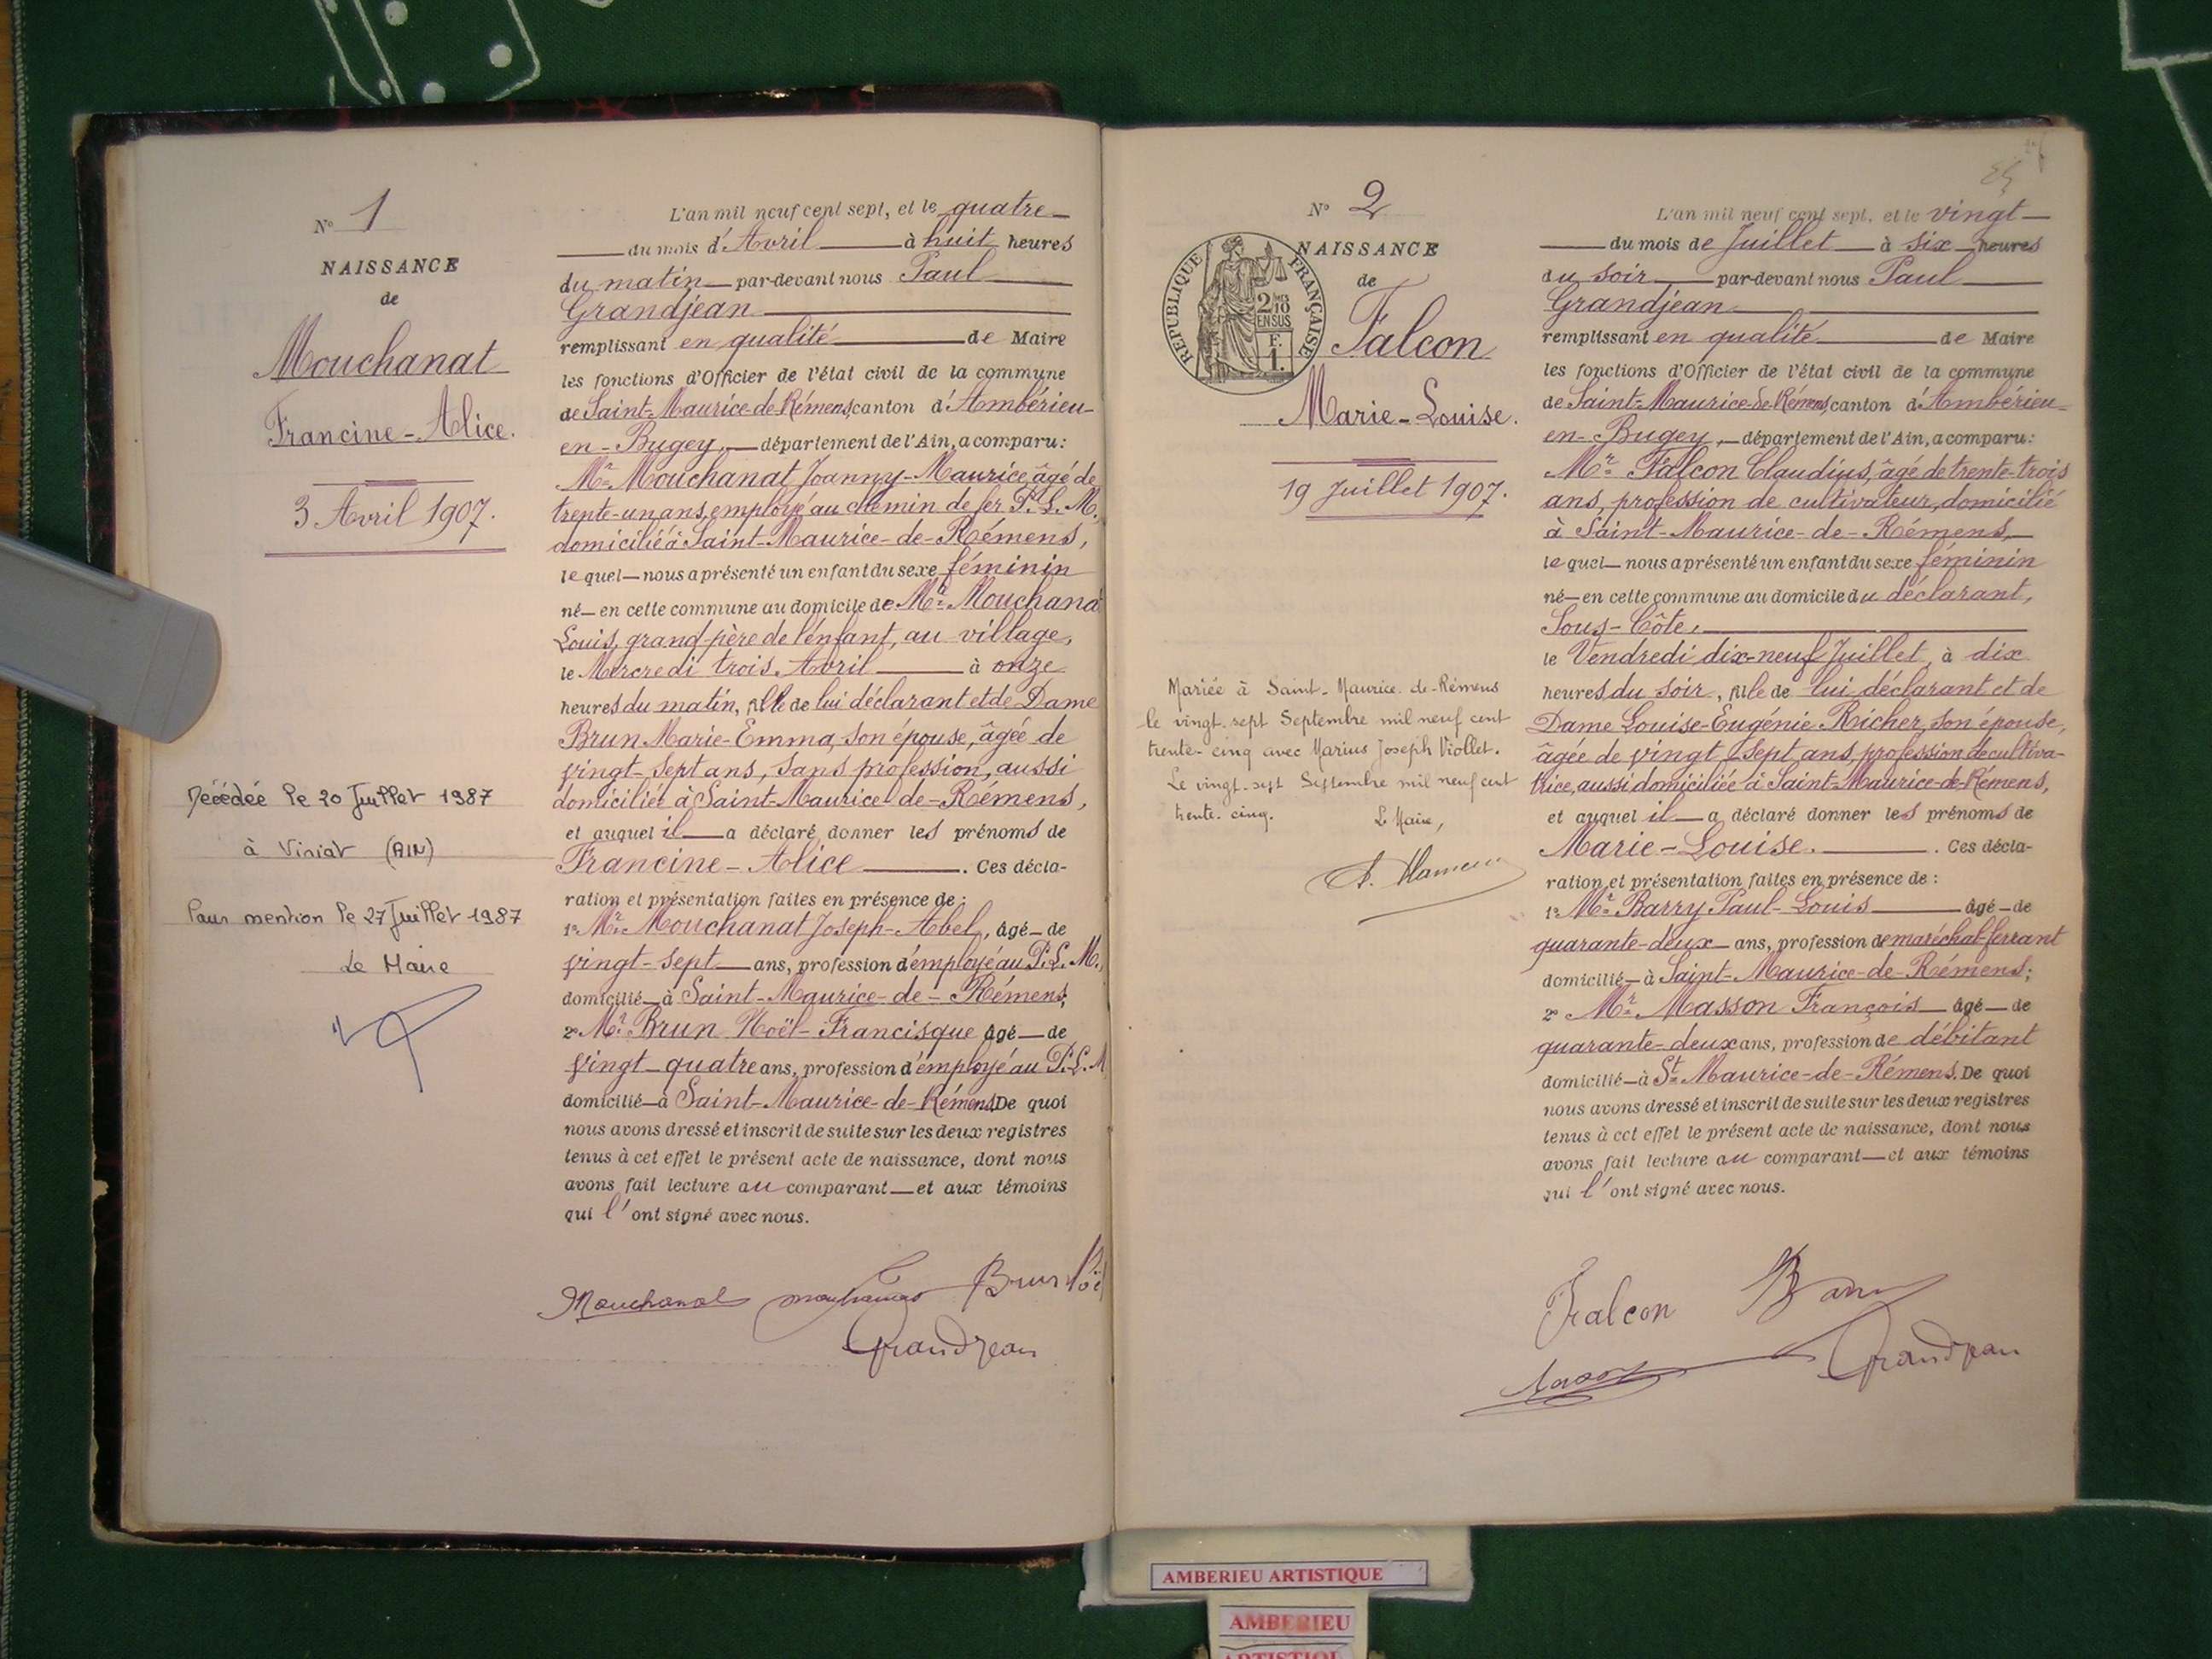 N° 1
NAISSANCE
de
Mouchanat
Francine-Alice.
3 Avril 1907.
Décédée le 20 Juillet 1987
à Viriat (AIN)
Pour mention le 27 Juillet 1987
Le Maire
L'an mil neuf cent sept, et le quatre
du mois d'Avril à huit heures
du matin par-devant nous Paul
Grandjean
remplissant en qualité de Maire
les fonctions d'Officier de l'état civil de la commune
de Saint-Maurice-de-Rémens, canton d'Ambérieu-
en-Bugey, département de l'Ain, a comparu:
Mr Mouchanat Joanny-Maurice, âgé de
trente-un ans, employé au chemin de fer P.L.M.
domicilié à Saint-Maurice-de-Rémens,
lequel nous a présenté un enfant du sexe féminin
né en cette commune au domicile de Mr Mouchana
Louis, grand-père de l'enfant, au village,
le Mercredi trois Avril à onze
heures du matin, fille de lui déclarant et de Dame
Brun Marie-Emma, son épouse, âgée de
vingt-sept ans, sans profession, aussi
domiciliée à Saint-Maurice-de-Rémens,
et auquel il a déclaré donner les prénoms de
Francine-Alice. Ces décla-
ration et présentation faites en présence de:
1° Mr Mouchanat Joseph-Abel, âgé de
vingt-sept ans, profession d'employé au P.L.M.,
domicilié à Saint-Maurice-de-Rémens;
2° Mr Brun Noël-Francisque âgé de
vingt-quatre ans, profession d'employé au P.L.M
domicilié à Saint-Maurice-de-Rémens. De quoi
nous avons dressé et inscrit de suite sur les deux registres
tenus à cet effet le présent acte de naissance, dont nous
avons fait lecture au comparant et aux témoins
qui l'ont signé avec nous.
Mouchanat Mouchanat Brun Noël
Grandjean
N° 2
NAISSANCE
de
RÉPUBLIQUE FRANÇAISE
2/10 EN SUS
F. 1.
Falcon
Marie-Louise.
19 Juillet 1907.
Mariée à Saint-Maurice-de-Rémens
le vingt-sept Septembre mil neuf cent
trente-cinq avec Marius Joseph Viollet.
Le vingt-sept Septembre mil neuf cent
trente-cinq.
Le Maire,
L'an mil neuf cent sept, et le vingt
du mois de Juillet à six heures
du soir par-devant nous Paul
Grandjean
remplissant en qualité de Maire
les fonctions d'Officier de l'état civil de la commune
de Saint-Maurice-de-Rémens, canton d'Ambérieu-
en-Bugey, département de l'Ain, a comparu:
Mr Falcon Claudius, âgé de trente-trois
ans, profession de cultivateur, domicilié
à Saint-Maurice-de-Rémens,
lequel nous a présenté un enfant du sexe féminin
né en cette commune au domicile du déclarant,
Sous-Côte,
le Vendredi dix-neuf Juillet, à dix
heures du soir, fille de lui déclarant et de
Dame Louise-Eugénie Richer, son épouse,
âgée de vingt-sept ans, profession de cultiva-
trice, aussi domiciliée à Saint-Maurice-de-Rémens,
et auquel il a déclaré donner les prénoms de
Marie-Louise. Ces décla-
ration et présentation faites en présence de:
1° Mr Barry Paul-Louis âgé de
quarante-deux ans, profession de maréchal-ferrant
domicilié à Saint-Maurice-de-Rémens;
2° Mr Masson François âgé de
quarante-deux ans, profession de débitant
domicilié à St Maurice-de-Rémens. De quoi
nous avons dressé et inscrit de suite sur les deux registres
tenus à cet effet le présent acte de naissance, dont nous
avons fait lecture au comparant et aux témoins
qui l'ont signé avec nous.
Falcon Barry
Masson Grandjean
AMBERIEU ARTISTIQUE
AMBERIEU
ARTISTIQUE